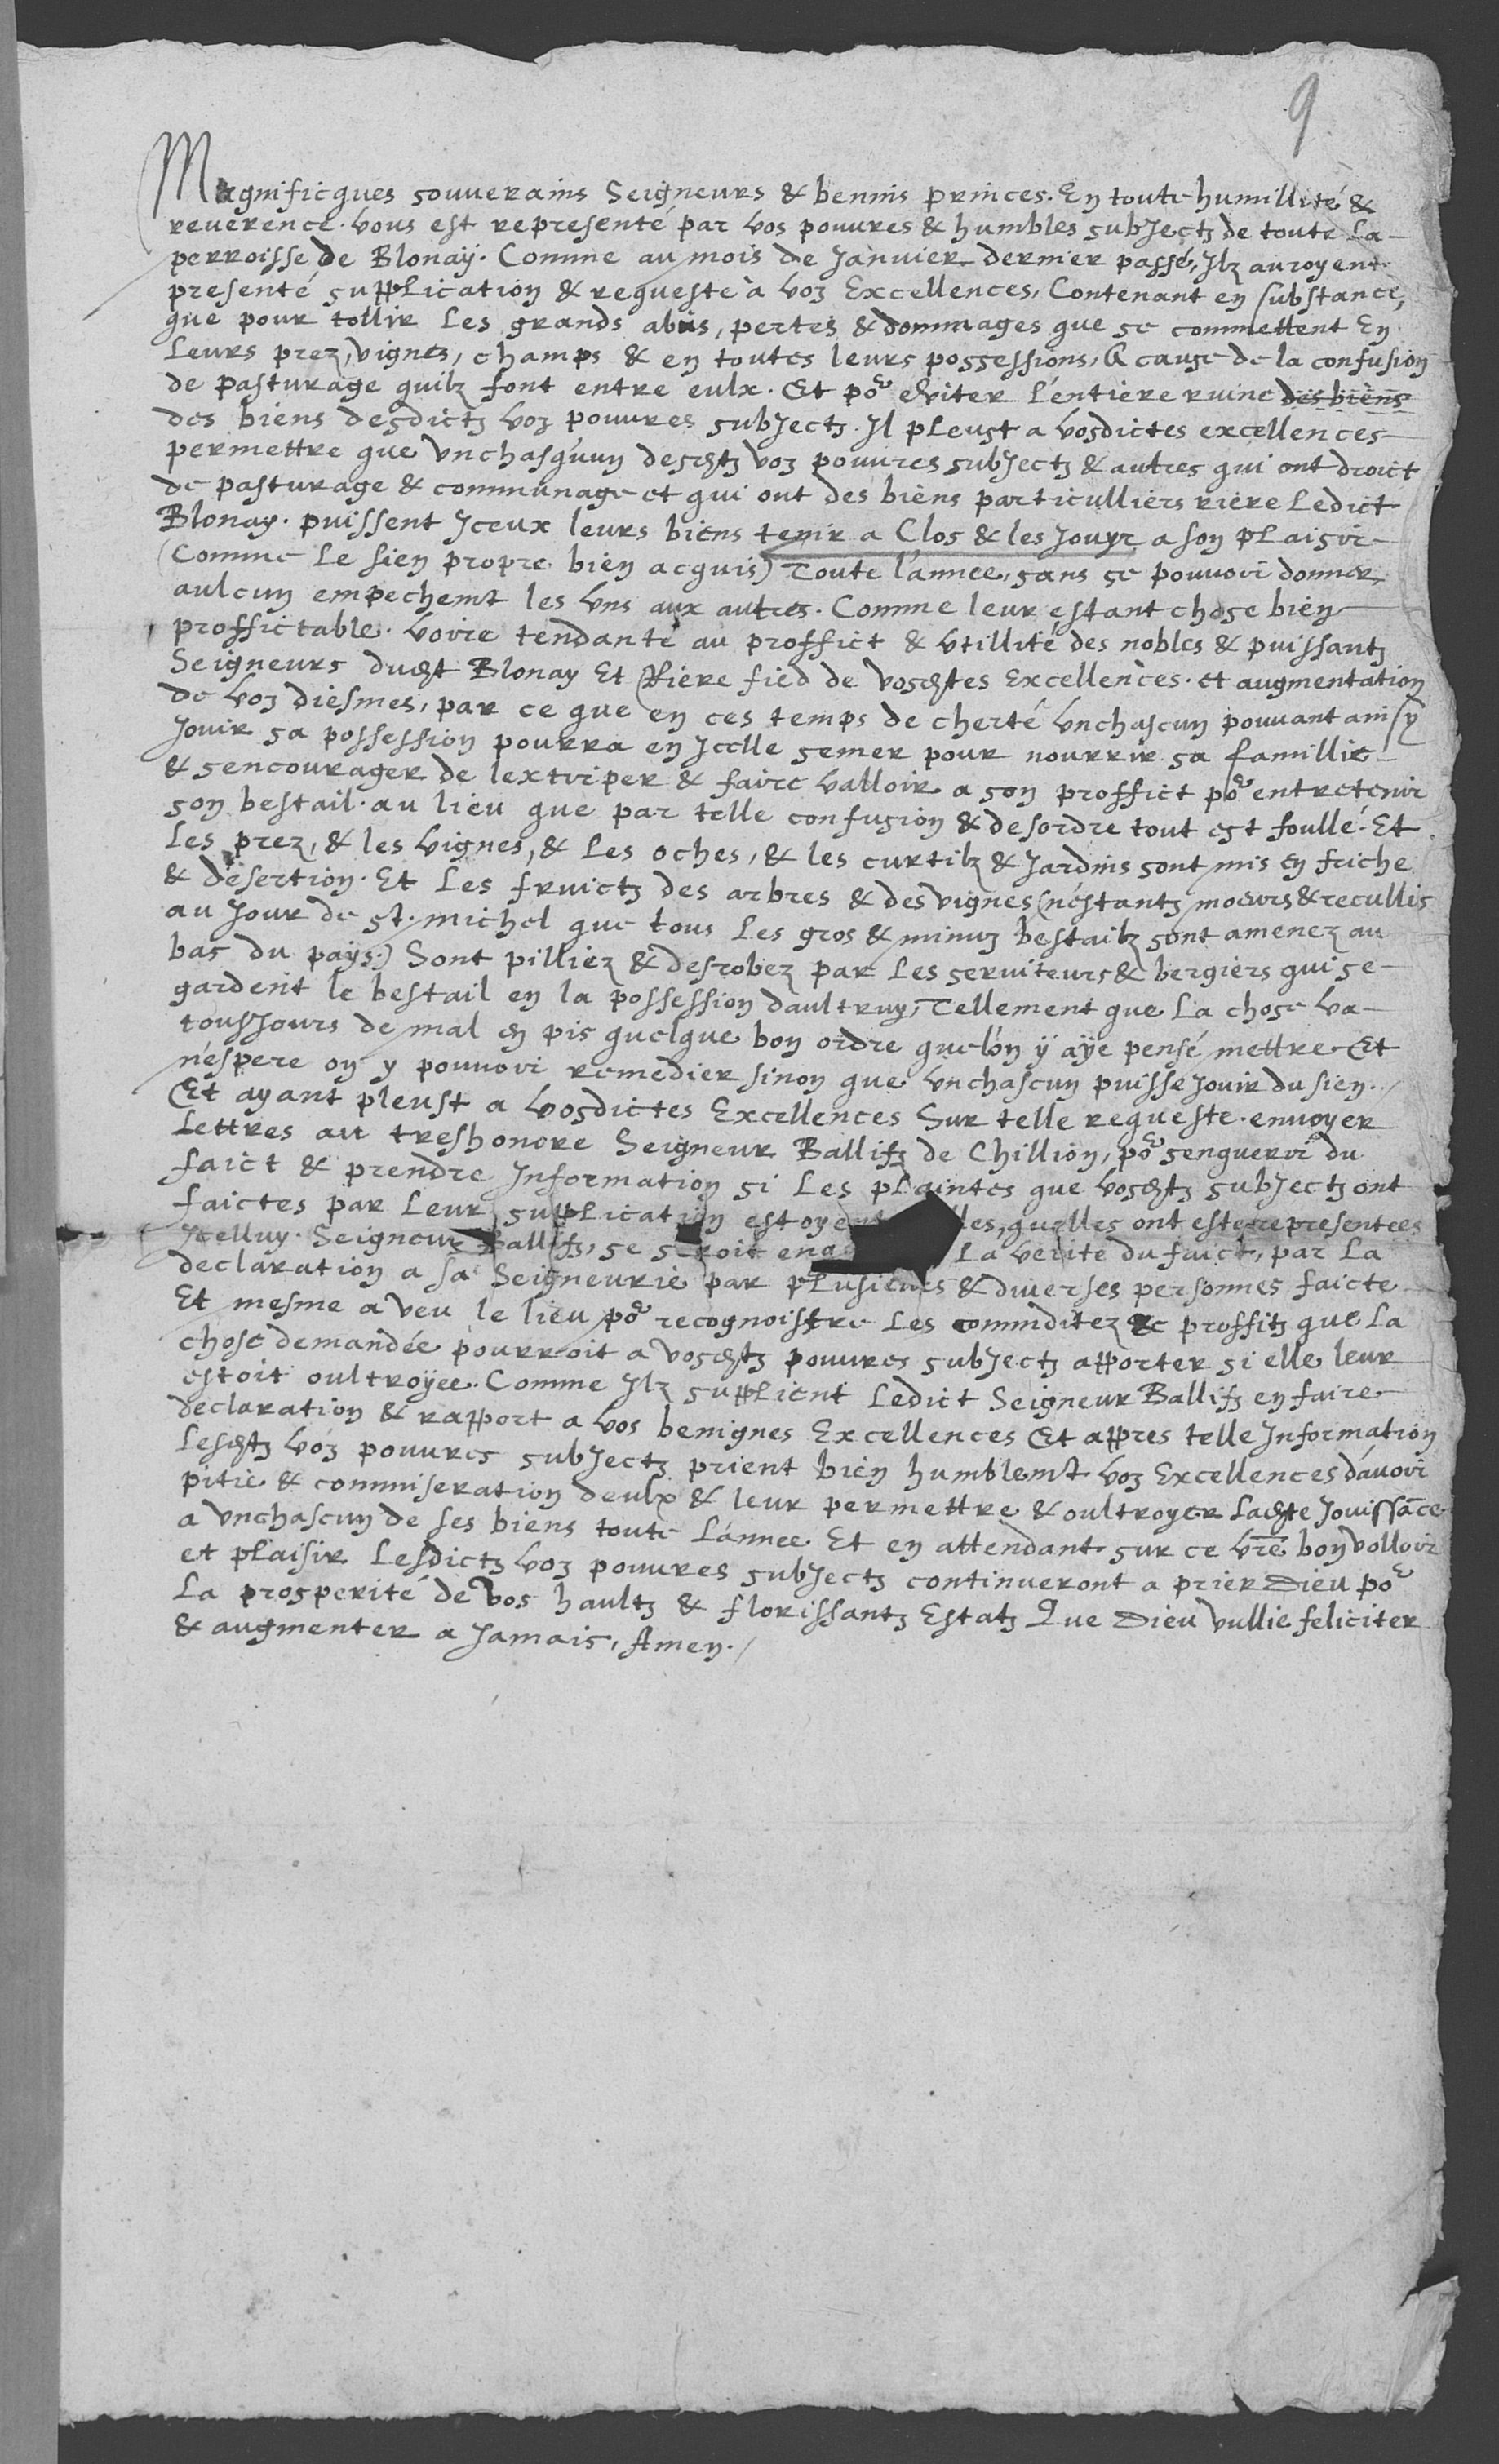 9
Magnificques souverains Seigneurs & benins princes. En toute humillité &
reverence. vous est representé par vos pouvres & humbles subJectz de toute La
perroisse de Blonaÿ. Comme au mois de Janvier dernier passé, Jlz auroyent
presenté supplication & requeste à voz Excellences, Contenant en substance,
que pour tollir Les grands abus, pertes & dommages que se commettent En
Leurs prez, vignes, champs & en toutes leurs possessions, A cause de la confusion
de pasturage quilz font entre eulx. Et po^r eviter L'entiere ruine des biens
des biens desdictz voz pouvres subJectz. Il pleust a vosdictes excellences
permettre que vnchasq'uun desdtz voz pouvres subJectz & autres qui ont droict
de pasturage & communage et qui ont des biens particulliers riere Ledict
Blonay. puissent Jceux leurs biens tenir a Clos & les Jouyr a son plaisir
(Comme Le sien propre bien acquis) Toute l'annee, sans se pouvoir donner
aulcun empechemt les vns aux autres. Comme leur estant chose bien
proffictable. voire tendante au proffict & vtillité des nobles & puissantz
Seigneurs dudt Blonay Et Riere fied de vosdtes Excellences. et augmentation
de voz diesmes, par ce que en ces temps de cherté vnchascun pouvant ainsy
Jouir sa possession pourra en Jcelle semer pour nourrir sa famillie
& sencourager de lextirper & faire valloir a son proffict po^r entretenir
son bestail. au lieu que par telle confusion & desordre tout est foullé. Et
Les prez, & les vignes, & Les oches, & les curtilz & Jardins sont mis en friche
& desertion. Et Les fruictz des arbres & des vignes (n'estantz moeurs & recullis
au Jour de st. michel que tous Les gros & minuz bestailz sont amenez au
bas du pays.) Sont pilliez & desrobez par Les serviteurs & bergiers qui se
gardent le bestail en la possession daultruy, Tellement que La chose va
tousJours de mal en pis quelque bon ordre que lón ÿ aÿe pensé mettre Et
n'espere on y pouvoir remedier sinon que vnchascun puisse Jouir du sien.
Et ayant pleust a vosdictes Excellences Sur telle requeste. envoyer
Lettres au treshonore Seigneur Ballifz de Chillion, po^r senquerir du
faict & prendre Information si Les plaintes que vosdtz subJectz ont
faictes par Leur supplication estoyent les, quelles ont este representees
Jcelluy. Seigneur Ballifz, se seroit La verité du faict, par La
declaration a sa Seigneurie par plusieurs & diverses personnes faicte
Et mesme a veu le lieu po^r recognoistre Les commditez & proffitz que La
chose demandée pourroit a vosdtz pouvres subJectz apporter si elle leur
estoit oultroyee. Comme Jlz supplient Ledict Seigneur Ballifz en faire
declaration & rapport a vos benignes Excellences Et appres telle Jnformation
Lesdtz voz pouvres subJectz prient bien humblemt voz Excellences dávoir
pitié & commiseration deulx & leur permettre & oultroyer Ladte Jouissāce
a vnchascun de ses biens toute Lánnee Et en attendant sur ce vrē bon volloir
et plaisir Lesdictz voz pouvres subJectz continueront a prier Dieu po^r
La prosperité de vos haultz & florissantz Estatz Que Dieu vullie feliciter
& augmenter a Jamais, Amen.